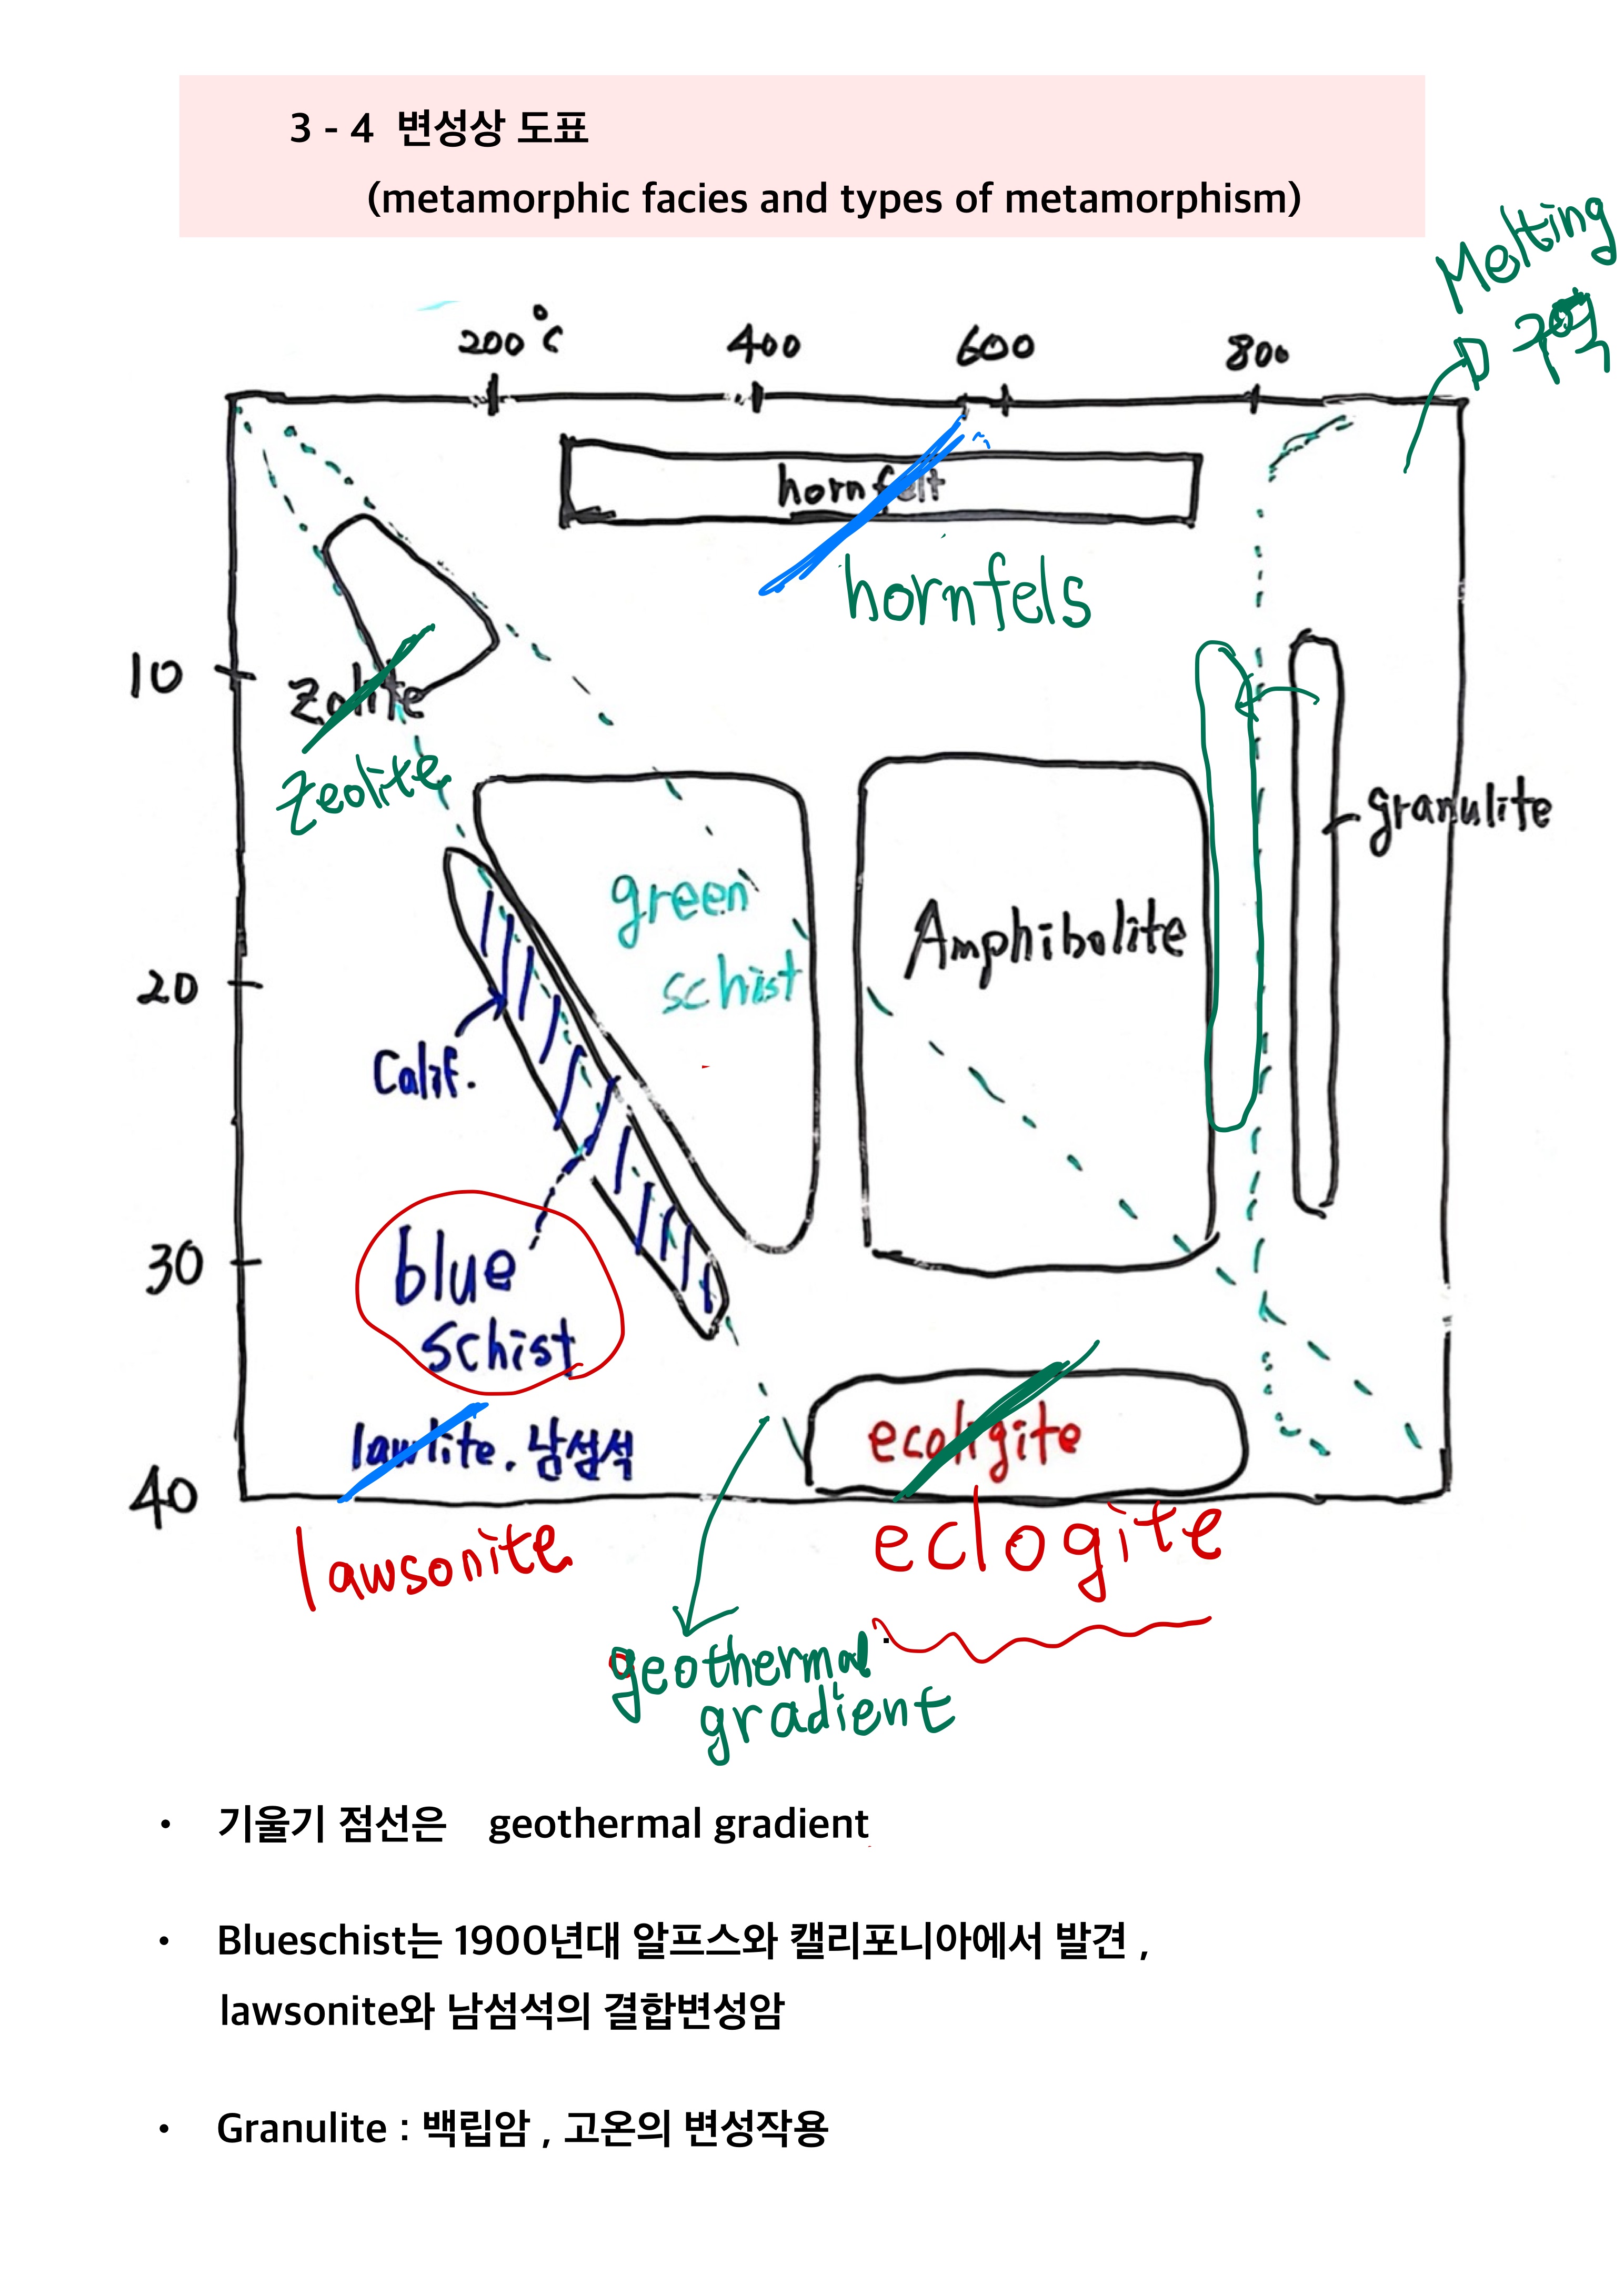 3 - 4 변성상 도표
(metamorphic facies and types of metamorphism)
Melting
구역
200°C 400 600 800
hornfelt
hornfels
10
Zolite
Zeolite
granulite
green
schist
Amphibolite
20
Calif.
30
blue
schist
lawlite. 남섬석
ecoligite
40
lawsonite
eclogite
geothermal
gradient
• 기울기 점선은 geothermal gradient
• Blueschist는 1900년대 알프스와 캘리포니아에서 발견 ,
lawsonite와 남섬석의 결합변성암
• Granulite : 백립암 , 고온의 변성작용